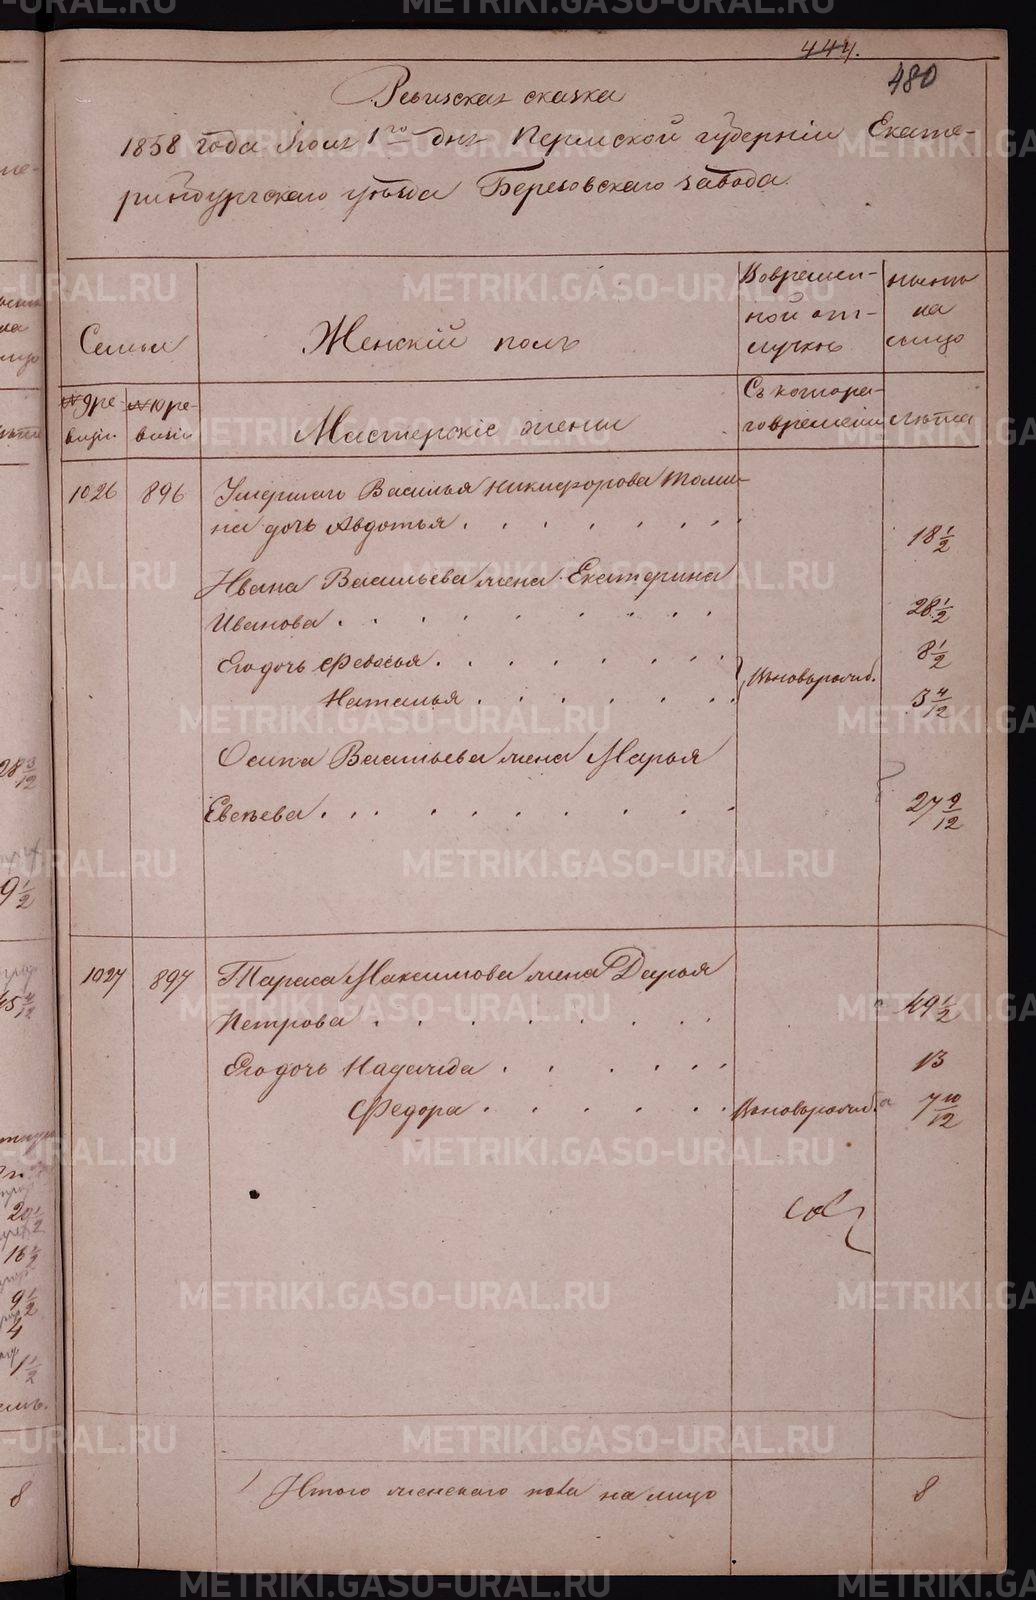 444.
480
Ревизская сказка
1858 года Июля 1го дня Пермской губернiи Екате-
ринбургскаго уѣзда Березовскаго завода.
Семьи
Женскiй полъ
Вовремен-
ной от-
лучкѣ
ныне
на
лицо
№ 9 ре-
визiи
№ 10 ре-
визiи
Мастерскiе жены
Съ котора-
го времени
лѣта
1026 896 Умершаго Василья Никифорова Томи-
на дочь Авдотья 18 1/2
Ивана Васильева жена Екатерина
Иванова 28 1/2
Его дочь Федосья 8 1/2
Наталья 3 4/12
вновьрожд.
Осипа Васильева жена Марья
Евсѣева 27 9/12
1027 897 Тараса Максимова жена Дарья
Петрова 49 1/2
Его дочь Надежда 13
Федора вновьрожд. 7 10/12
Итого женскаго пола на лицо 8
28 3/12
9 1/2
45 4/12
20 1/2
16 1/2
9 1/2
4
1 1/2
8
METRIKI.GASO-URAL.RU